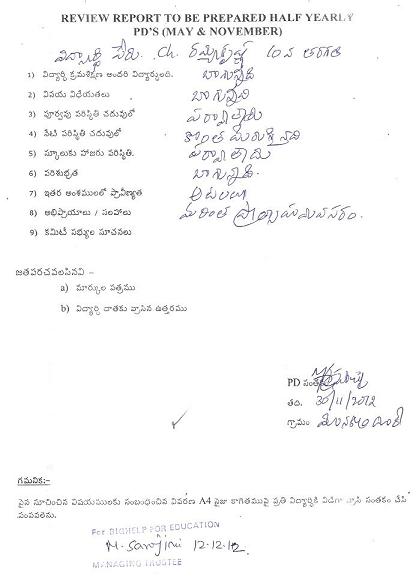 REVIEW REPORT TO BE PREPARED HALF YEARLY
PD'S (MAY & NOVEMBER)
విద్యార్థి పేరు. Ch. 10వ తరగతి
1) విద్యార్థి క్రమశిక్షణ అందరి విద్యార్థులది. బాగున్నది
2) విషయ విధేయతలు బాగున్నది
3) పూర్వపు పరిస్థితి చదువులో పరవాలేదు
4) నేటి పరిస్థితి చదువులో కొంత మెరుగైనది
5) స్కూలుకు హాజరు పరిస్థితి. పరవాలేదు
6) పరిశుభ్రత బాగున్నది.
7) ఇతర అంశములలో ప్రావీణ్యత ఆటలలో
8) అభిప్రాయాలు / సలహాలు మరింత ప్రోత్సాహమవసరం.
9) కమిటీ సభ్యుల సూచనలు
జతపరచవలసినవి :-
a) మార్కుల పత్రము
b) విద్యార్థి దాతకు వ్రాసిన ఉత్తరము
PD సంతకం
తేది. 30/11/2012
గ్రామం
గమనిక:-
పైన సూచించిన విషయములకు సంబంధించిన వివరణ A4 సైజు కాగితముపై ప్రతి విద్యార్థికి విడిగా వ్రాసి సంతకం చేసి
పంపవలెను.
For BIGHELP FOR EDUCATION
M. Sarojini 12.12.12
MANAGING TRUSTEE